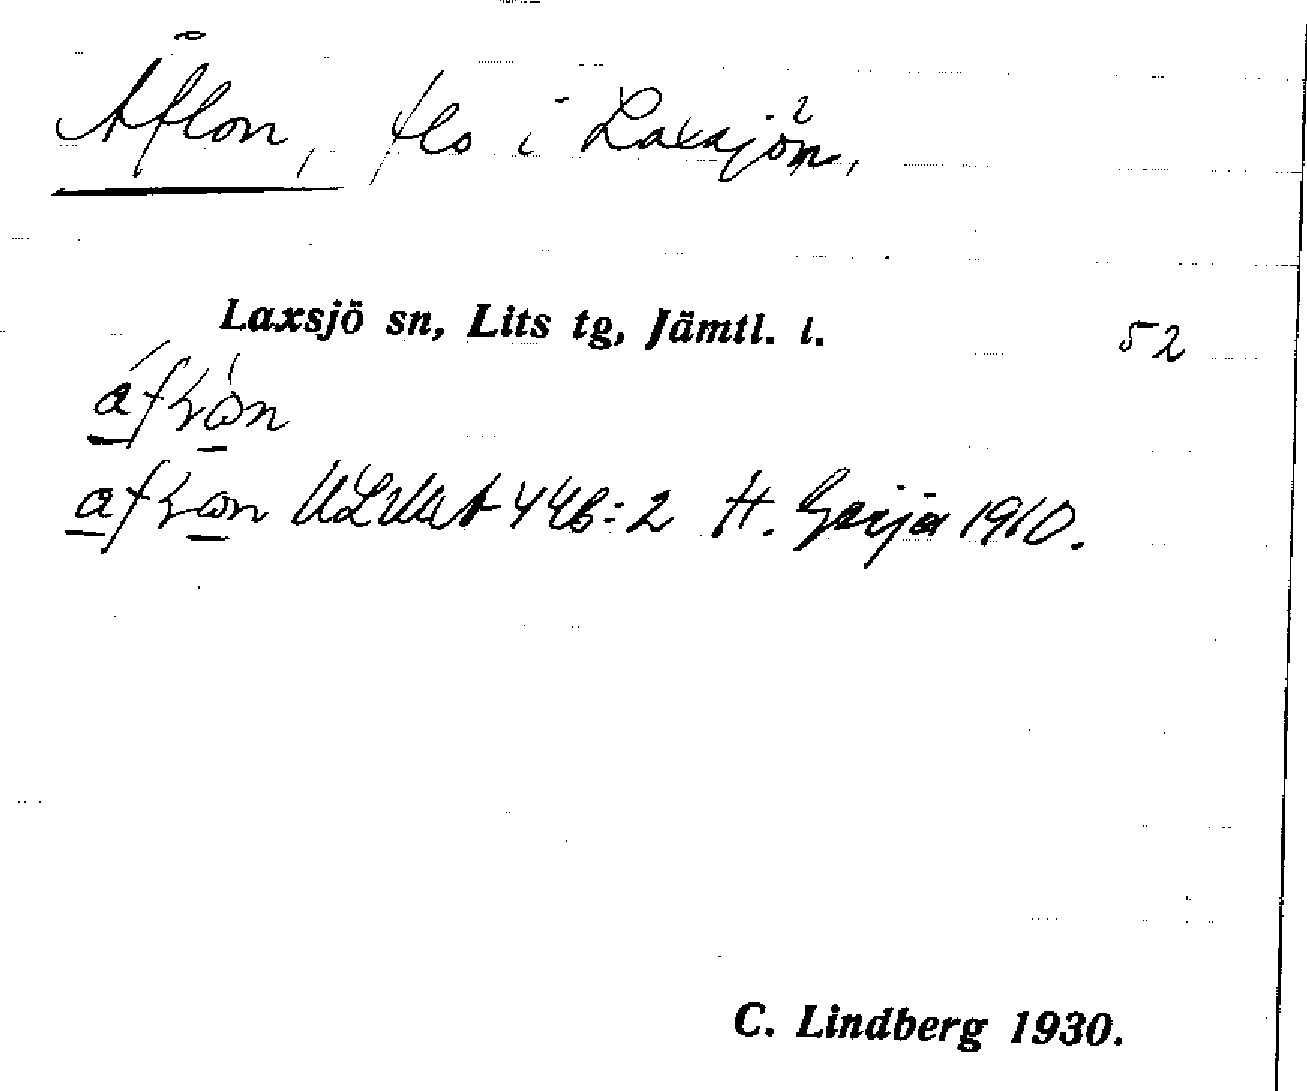 Åflon, flo i Laxsjön,
Laxsjö sn, Lits tg, Jämtl. l. 52
ULMA 446:2 H. Geijer 1910.
C. Lindberg 1930.